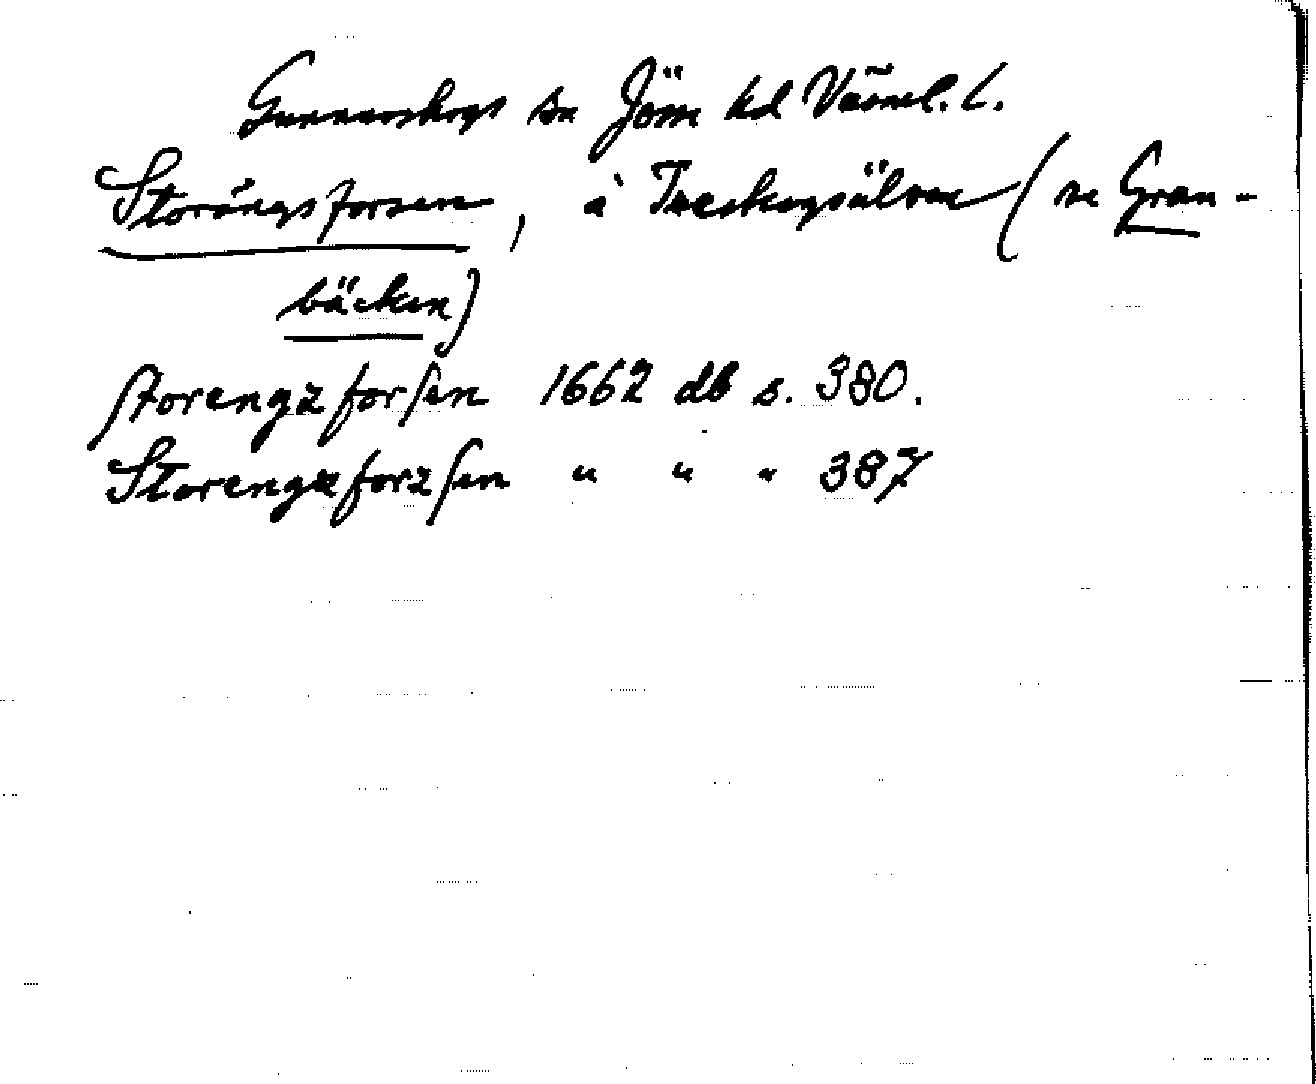 Gunnarskogs sn Jösse hd Värml. l.
Storängsforsen, i Treskogsälven (se Gran-
bäcken)
storengzforsen 1662 db s. 380.
Storengzforzsen " " " 387